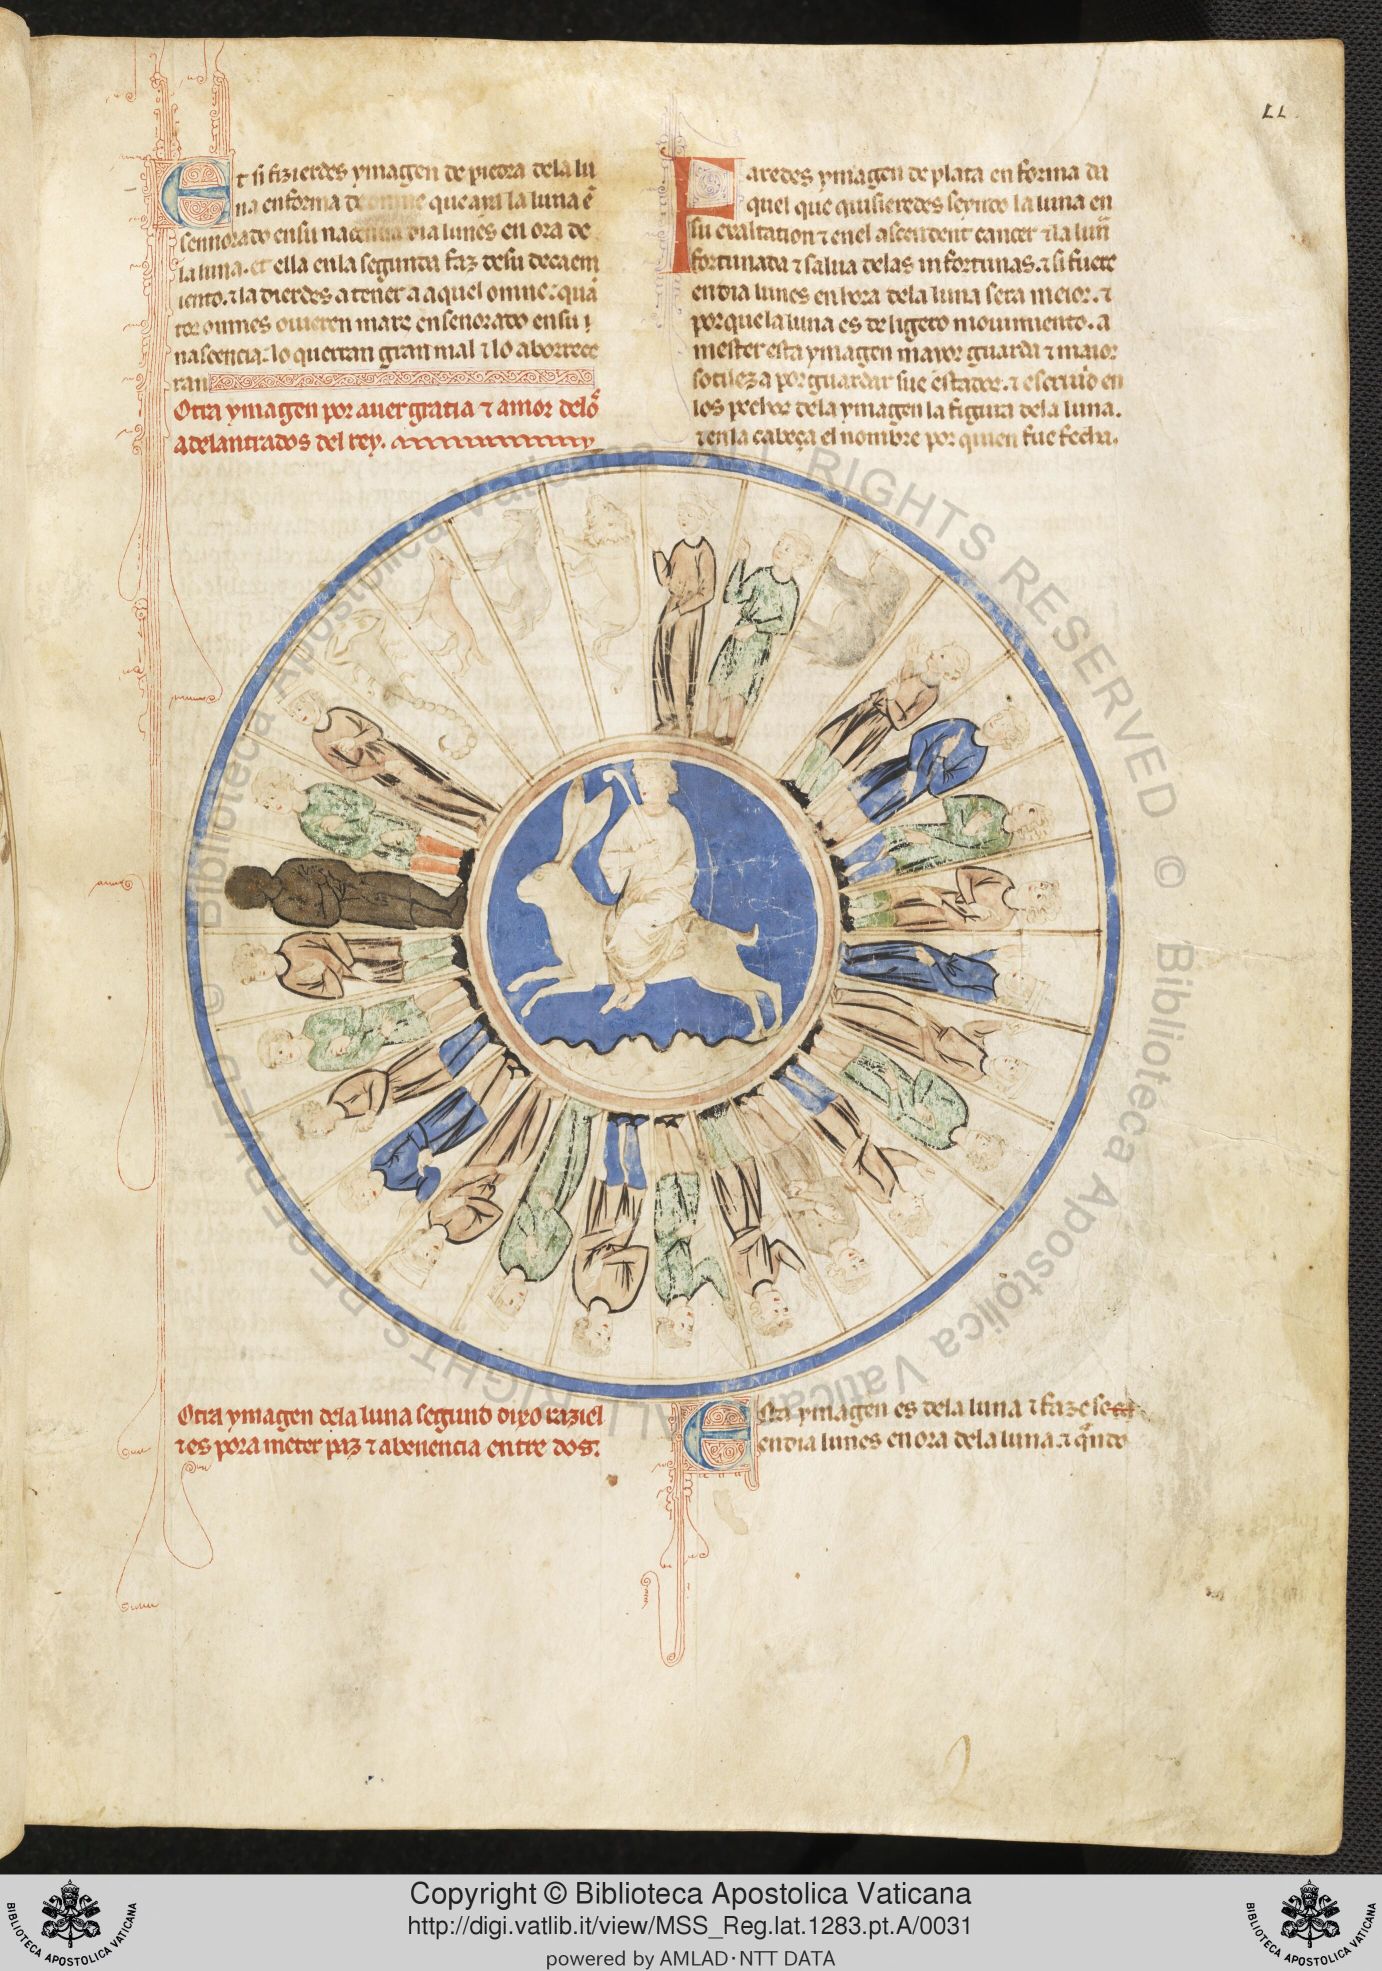 LL
Et si fizierdes ymagen de piedra dela lu
na en forma de omne que aya la luna e᷑
sennorado en su nacencia dia lunes en ora de
la luna. et ella en la segunda faz de su decaem
iento. ⁊ la dierdes a tener a aquel omne: quā
tos omnes ouieren marz ensenorado en su
nascencia: lo querran gran mal ⁊ lo aborrece
ran
Otra ymagen por auer gratia ⁊ amor delos
adelantrados del rey.
Faredes ymagen de plata en forma da
quel que quisieredes seyndo la luna en
su exaltation ⁊ en el ascendent cancer ⁊ la luna
fortunada ⁊ salua delas infortunas. ⁊ si fuere
en dia lunes en hora dela luna sera meior. ⁊
por que la luna es de ligero mouimiento. a
mester esta ymagen mayor guarda ⁊ maior
sotileza por guardar sue estador. ⁊ escriuid en
los pechos dela ymagen la figura dela luna.
⁊ en la cabeça el nombre por quien fue fecha.
Otra ymagen dela luna segund dixo raziel
⁊ es pora meter paz ⁊ abenencia entre dos:
Esta ymagen es dela luna ⁊ faze se
en dia lunes en ora dela luna. ⁊ quādo
© Biblioteca Apostolica Vaticana ALL RIGHTS RESERVED © Biblioteca Apostolica Vaticana ALL RIGHTS RESERVED
BIBLIOTECA APOSTOLICA VATICANA
Copyright © Biblioteca Apostolica Vaticana
http://digi.vatlib.it/view/MSS_Reg.lat.1283.pt.A/0031
powered by AMLAD·NTT DATA
BIBLIOTECA APOSTOLICA VATICANA